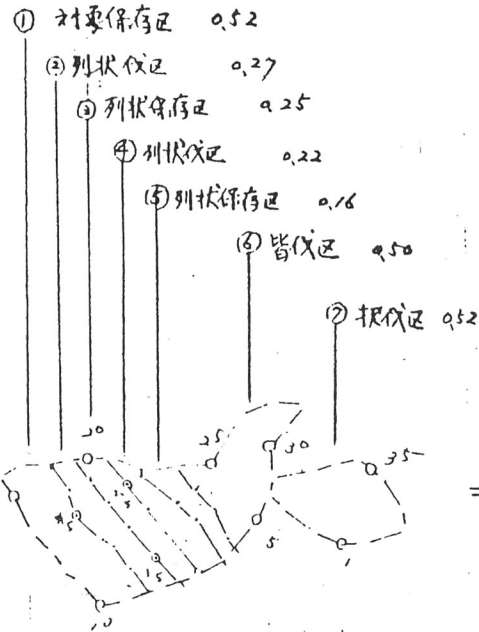 ① 対照保存区 0.52
② 列状伐区 0.27
③ 列状保存区 0.25
④ 列状伐区 0.22
⑤ 列状保存区 0.16
⑥ 皆伐区 0.50
⑦ 択伐区 0.52
20
25
30
35
15
5
1
10